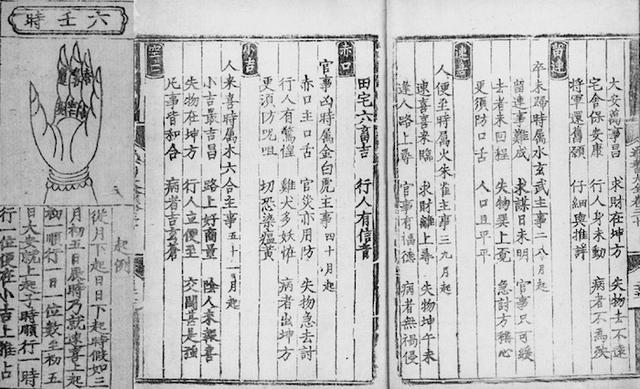 留連
大安萬事昌 求財在坤方 失物去不遠
宅舍保安康 行人身未動 病者不為殃
將軍還舊願 仔細與推詳
卒未歸時屬水玄武主事二八月起
留連事難成 求謀日未明 官事只可緩
去者未回程 失物巽上覓 急討方稱心
更須防口舌 人口且平平
人便至時屬火朱雀主事三九月起
速喜喜來臨 求財離上尋 失物坤午未
逢人路上尋 官事有福德 病者無禍侵
田宅六畜吉 行人有信音
赤口
官事凶時屬金白虎主事四十月起
赤口主口舌 官災亦用防 失物急去討
行人有驚惶 雞犬多妖怪 病者出坤方
更須防咒咀 切恐染瘟黃
小吉
人來喜時屬木六合主事五十一月起
小吉最吉昌 路上好商量 陰人來報喜
失物在坤方 行人立便至 交關甚是強
凡事皆和合 病者告穹蒼
空亡
六壬時
起例
從月下起日日下起時假如三
月初五日辰時乃就速喜上起
初一順行一日一位數至初五
日大安就上起子時順行一時
行一位便在小吉上推占